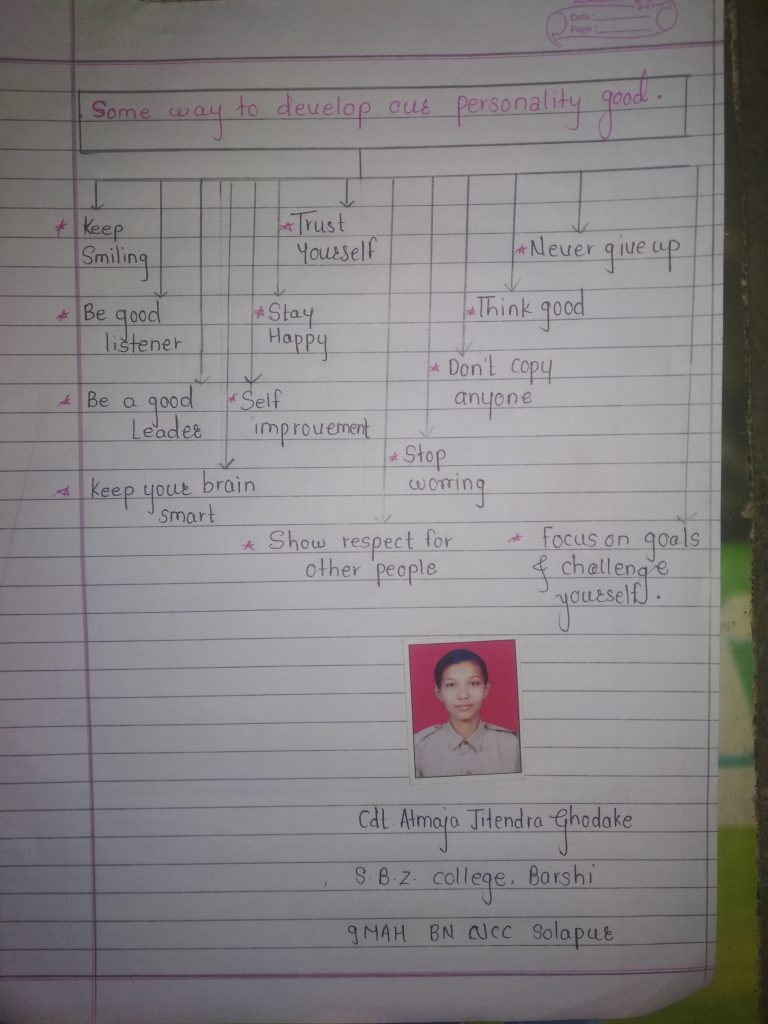 Date:
Page:
Some way to develop our personality good.
* Keep
Smiling
* Trust
Yourself
* Never give up
* Be good
listener
* Stay
Happy
* Think good
* Don't copy
anyone
* Be a good
Leader
* Self
improvement
* Stop
worring
* Keep your brain
smart
* Show respect for
other people
* Focus on goals
& challenge
yourself.
Cdt. Atmaja Jitendra Ghodake
S.B.Z. college, Barshi
9 MAH BN NCC Solapur